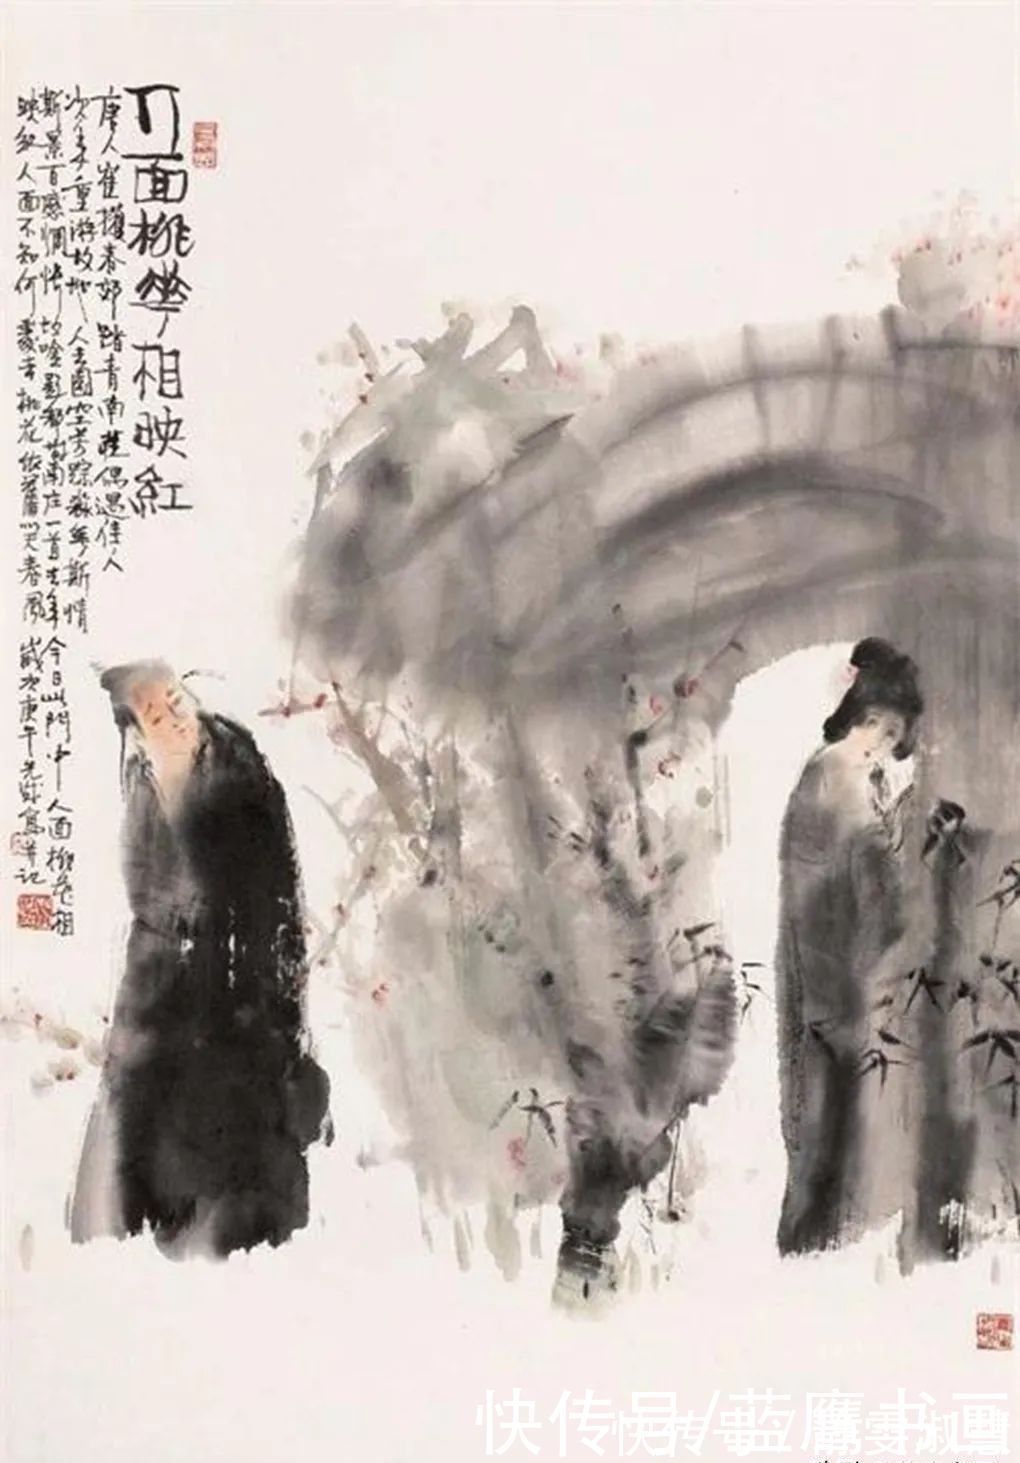 人面桃華相映紅
唐人崔護春郊踏青南莊偶遇佳人
次年重游故地人去園空芳踪
斯情
斯景百感惆悵 都城南庄一首去年今日此門中人面桃花相
映红人面不知何處去桃花依舊笑春風 歲次庚午 寫并记
快传号/蓝鹰书画
快传号/